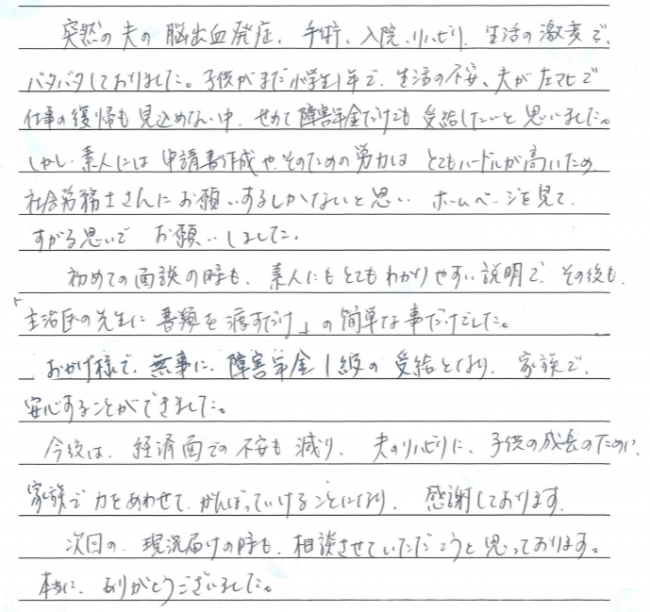 突然の夫の脳出血発症、手術、入院、リハビリ、生活の激変で、
バタバタしておりました。子供がまだ小学生1年で、生活の不安、夫が左マヒで
仕事の復帰も見込めない中、せめて障害年金だけでも受給したいと思いました。
しかし、素人には申請書作成や、そのための労力はとてもハードルが高いため、
社会労務士さんにお願いするしかないと思い、ホームページを見て、
すがる思いでお願いしました。
初めての面談の時も、素人にもとてもわかりやすい説明で、その後も、
「主治医の先生に書類を渡すだけ」の簡単な事だけでした。
おかげ様で、無事に、障害年金1級の受給となり、家族で、
安心することができました。
今後は、経済面での不安も減り、夫のリハビリに、子供の成長のために、
家族で力をあわせて、がんばっていけることになり、感謝しております。
次回の、現況届けの時も、相談させていただこうと思っております。
本当に、ありがとうございました。